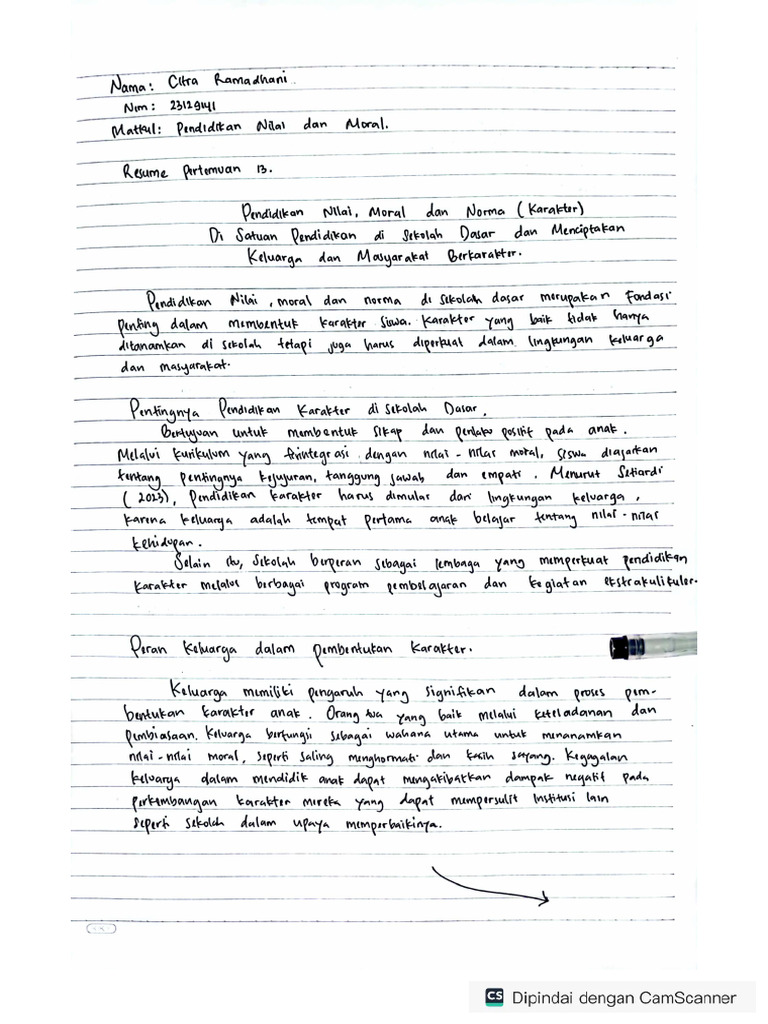 Nama: Citra Ramadhani
Nim: 23129141
Matkul: Pendidikan Nilai dan Moral.
Resume Pertemuan 13.
Pendidikan Nilai, Moral dan Norma (Karakter)
Di Satuan Pendidikan di Sekolah Dasar dan Menciptakan
Keluarga dan Masyarakat Berkarakter.
Pendidikan Nilai, moral dan norma di sekolah dasar merupakan Fondasi
penting dalam membentuk karakter siswa. Karakter yang baik tidak hanya
ditanamkan di sekolah tetapi juga harus diperkuat dalam lingkungan keluarga
dan masyarakat.
Pentingnya Pendidikan Karakter di Sekolah Dasar.
Bertujuan untuk membentuk sikap dan perilaku positif pada anak.
Melalui kurikulum yang terintegrasi dengan nilai-nilai moral, siswa diajarkan
tentang pentingnya kejujuran, tanggung jawab dan empati. Menurut Setiardi
(2023), Pendidikan karakter harus dimulai dari lingkungan keluarga,
karena keluarga adalah tempat pertama anak belajar tentang nilai-nilai
kehidupan.
Selain itu, sekolah berperan sebagai lembaga yang memperkuat pendidikan
karakter melalui berbagai program pembelajaran dan kegiatan ekstrakulikuler.
Peran Keluarga dalam pembentukan Karakter.
Keluarga memiliki pengaruh yang signifikan dalam proses pem-
bentukan karakter anak. Orang tua yang baik melalui keteladanan dan
pembiasaan. Keluarga berfungsi sebagai wahana utama untuk menanamkan
nilai-nilai moral, seperti saling menghormati dan kasih sayang. Kegagalan
keluarga dalam mendidik anak dapat mengakibatkan dampak negatif pada
perkembangan karakter mereka yang dapat mempersulit institusi lain
seperti sekolah dalam upaya memperbaikinya.
CS Dipindai dengan CamScanner